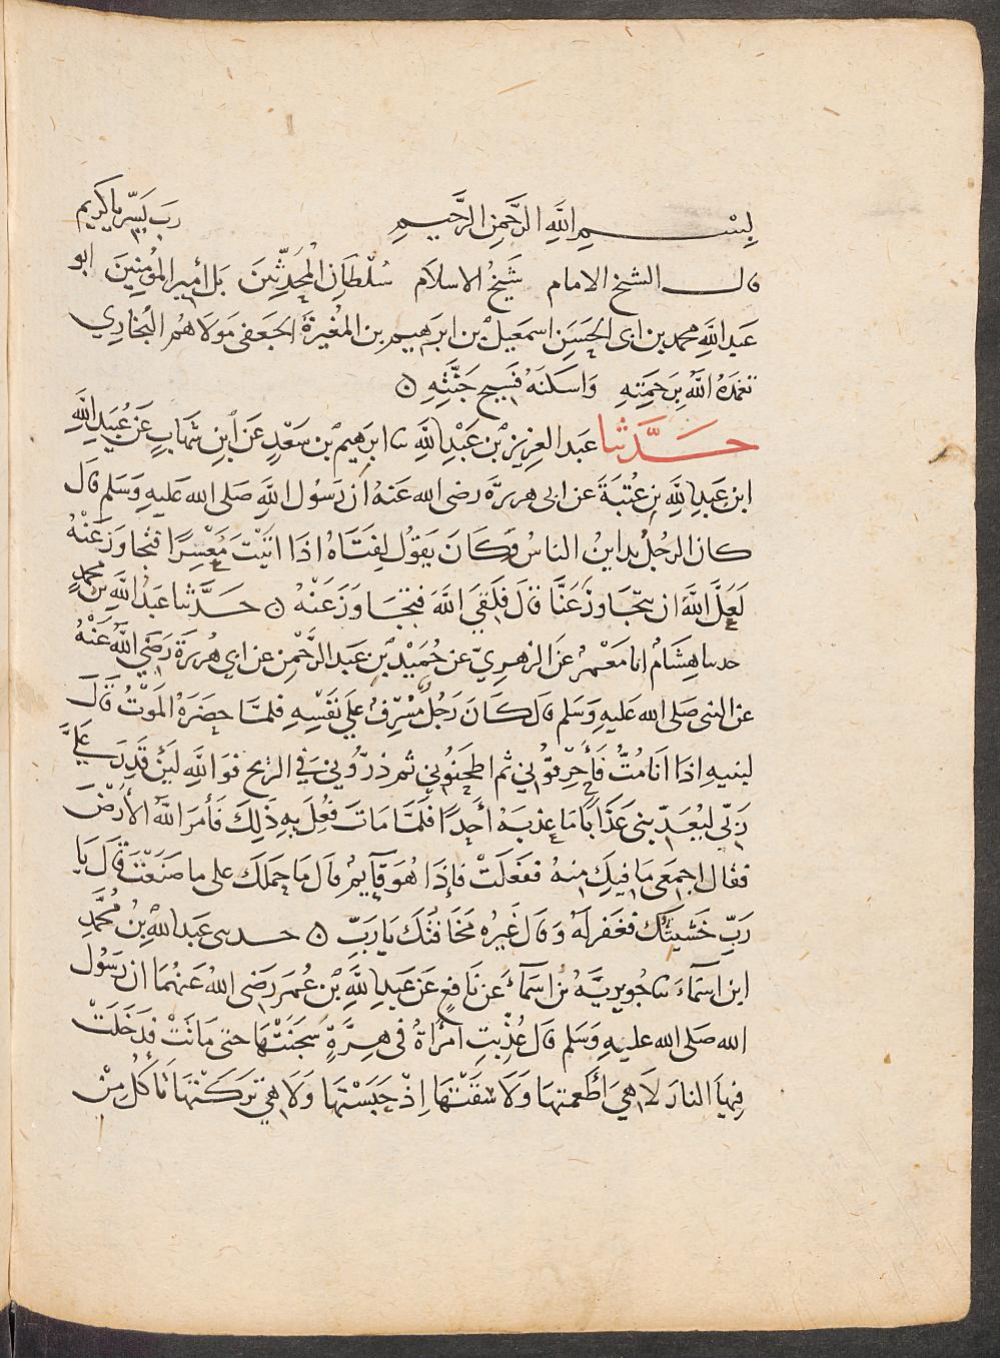 بِسْمِ اللَّهِ الرَّحْمَنِ الرَّحِيمِ رَب يَسِّر يا كريم
قال الشيخ الامام شَيخُ الاسلَام سُلْطَانِ المُحَدِّثِينَ بَل أمِيرِ المُؤمِنِينَ ابو
عَبد اللَّهِ محمد بن ابى الحَسَن اسمَعِيل بْن ابرَهِيم بن المُغيرَة الجُعَفى مَولَاهُم البُخَارِي
تغمّدَهُ اللَّهُ بِرَحمَتِهِ وَاسكَنَهُ فَسِيحَ جَنَّتِهِ ه
حَدَّثنا عَبد العزِيز بْن عَبْدِ اللَّهِ ثنا ابرَهِيم بْن سَعْدٍ عَن ابْنِ شهَابٍ عَن عُبَيدِ اللَّهِ
ابن عَبدِ اللَّهِ بنِ عُتبَةَ عَن ابى هريرَة رضى الله عَنهُ ان رَسُول اللَّهِ صَلى الله عَليهِ وَسَلم قَال
كان الرجُلُ يداينُ الناسَ وَكَانَ يَقوُل لِفتَاهُ اذَا اتَيْتَ مُعْسِرًا فتجاوَز عَنْهُ
لَعَلَّ اللَّهَ ان يتجَاوزَ عَنَّا قَالَ فلَقِيَ اللَّهَ فتجَاوَزَ عَنْهُ ه حَدَّثنا عَبْدُ اللَّهِ بن محمدٍ
حدثنا هِشَامٌ انا مَعْمَرٌ عَن الزهرِيّ عن حُمَيْد بْن عَبد الرَّحْمن عن ابى هُرَيرَة رَضِيَ اللَّهُ عَنْهُ
عن النبى صَلى الله عَليهِ وَسَلم قال كَانَ رَجُلٌ مُسْرِفٌ عَلَى نَفْسِهِ فلمَّا حضَرَهُ المَوْتُ قَالَ
لبنيهِ اذَا انَا مُتُّ فَأحرِقوُنى ثم اطحَنُونِي ثم ذرُّونِي في الرِّيح فوَ اللَّهِ لَئِنْ قَدِرَ عَلَيَّ
رَبِّي ليُعَذِّبنى عَذَابًا مَا عذبَهُ أحَدًا فلَمَّا مَاتَ فعُلَ بِهِ ذَلِكَ فَأمَرَ اللَّهُ الأرْضَ
فقال اجمَعِى مَا فيكِ مِنهُ ففعَلَتْ فإذَا هُوَ قَآئِمٌ قال مَا حمَلَكَ على ما صَنَعْتَ قَالَ يَا
رَبِّ خَشيَتُكَ فغَفرَ لَهُ وَقَال غَيرُه مَخَافتُكَ يَا رَبِّ ه حدثنى عَبد اللَّهِ بْنُ مُحَمَّدِ
ابن اسمَآءَ ثنا جُوَيرِيَةُ بْنُ اسمَآءَ عن نَافعٍ عَن عَبدِ اللَّهِ بْن عُمَر رَضى اللهُ عَنهُمَا ان رَسُول
الله صَلى الله عليهِ وَسَلم قَالَ عُذِّبتِ امرَأةٌ فى هِرَّةٍ سَجَنَتْهَا حتى مَاتَتْ فدَخَلَتْ
فِيهَا النارَ لَا هِيَ أطعَمتهَا وَلَا سَقَتْهَا اِذْ حَبَسَتْهَا وَلَا هِيَ تَركَتْهَا تَأكُل مِنْ